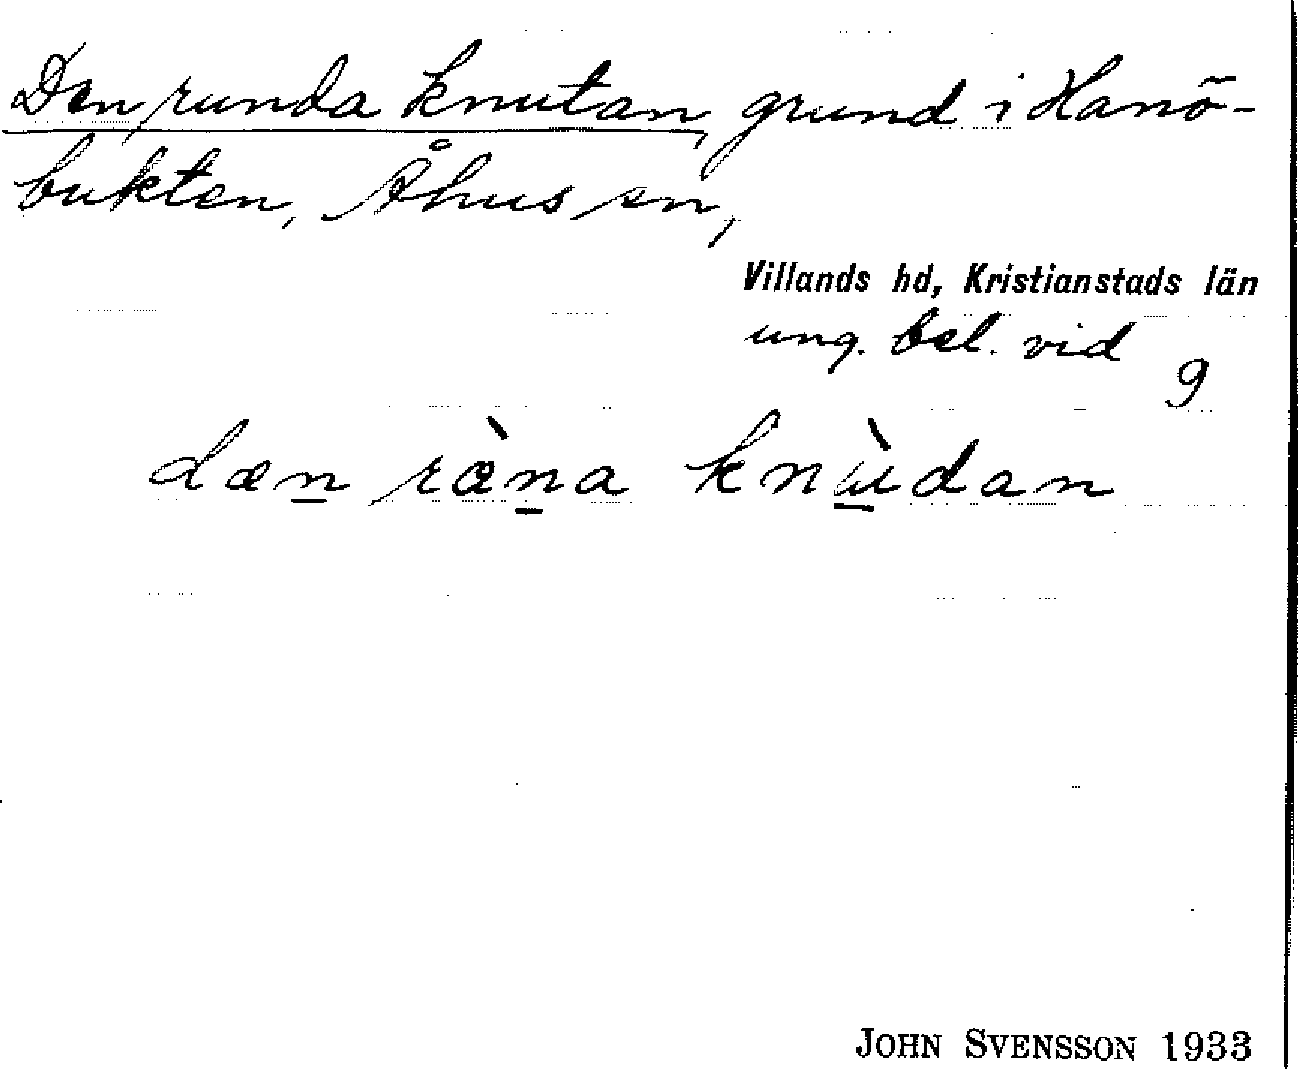 Den runda knutan, grund i Hanö-
bukten, Åhus sn,
Villands hd, Kristianstads län
ung. bel. vid
9
dæn ræ̀na knùdan
JOHN SVENSSON 1933